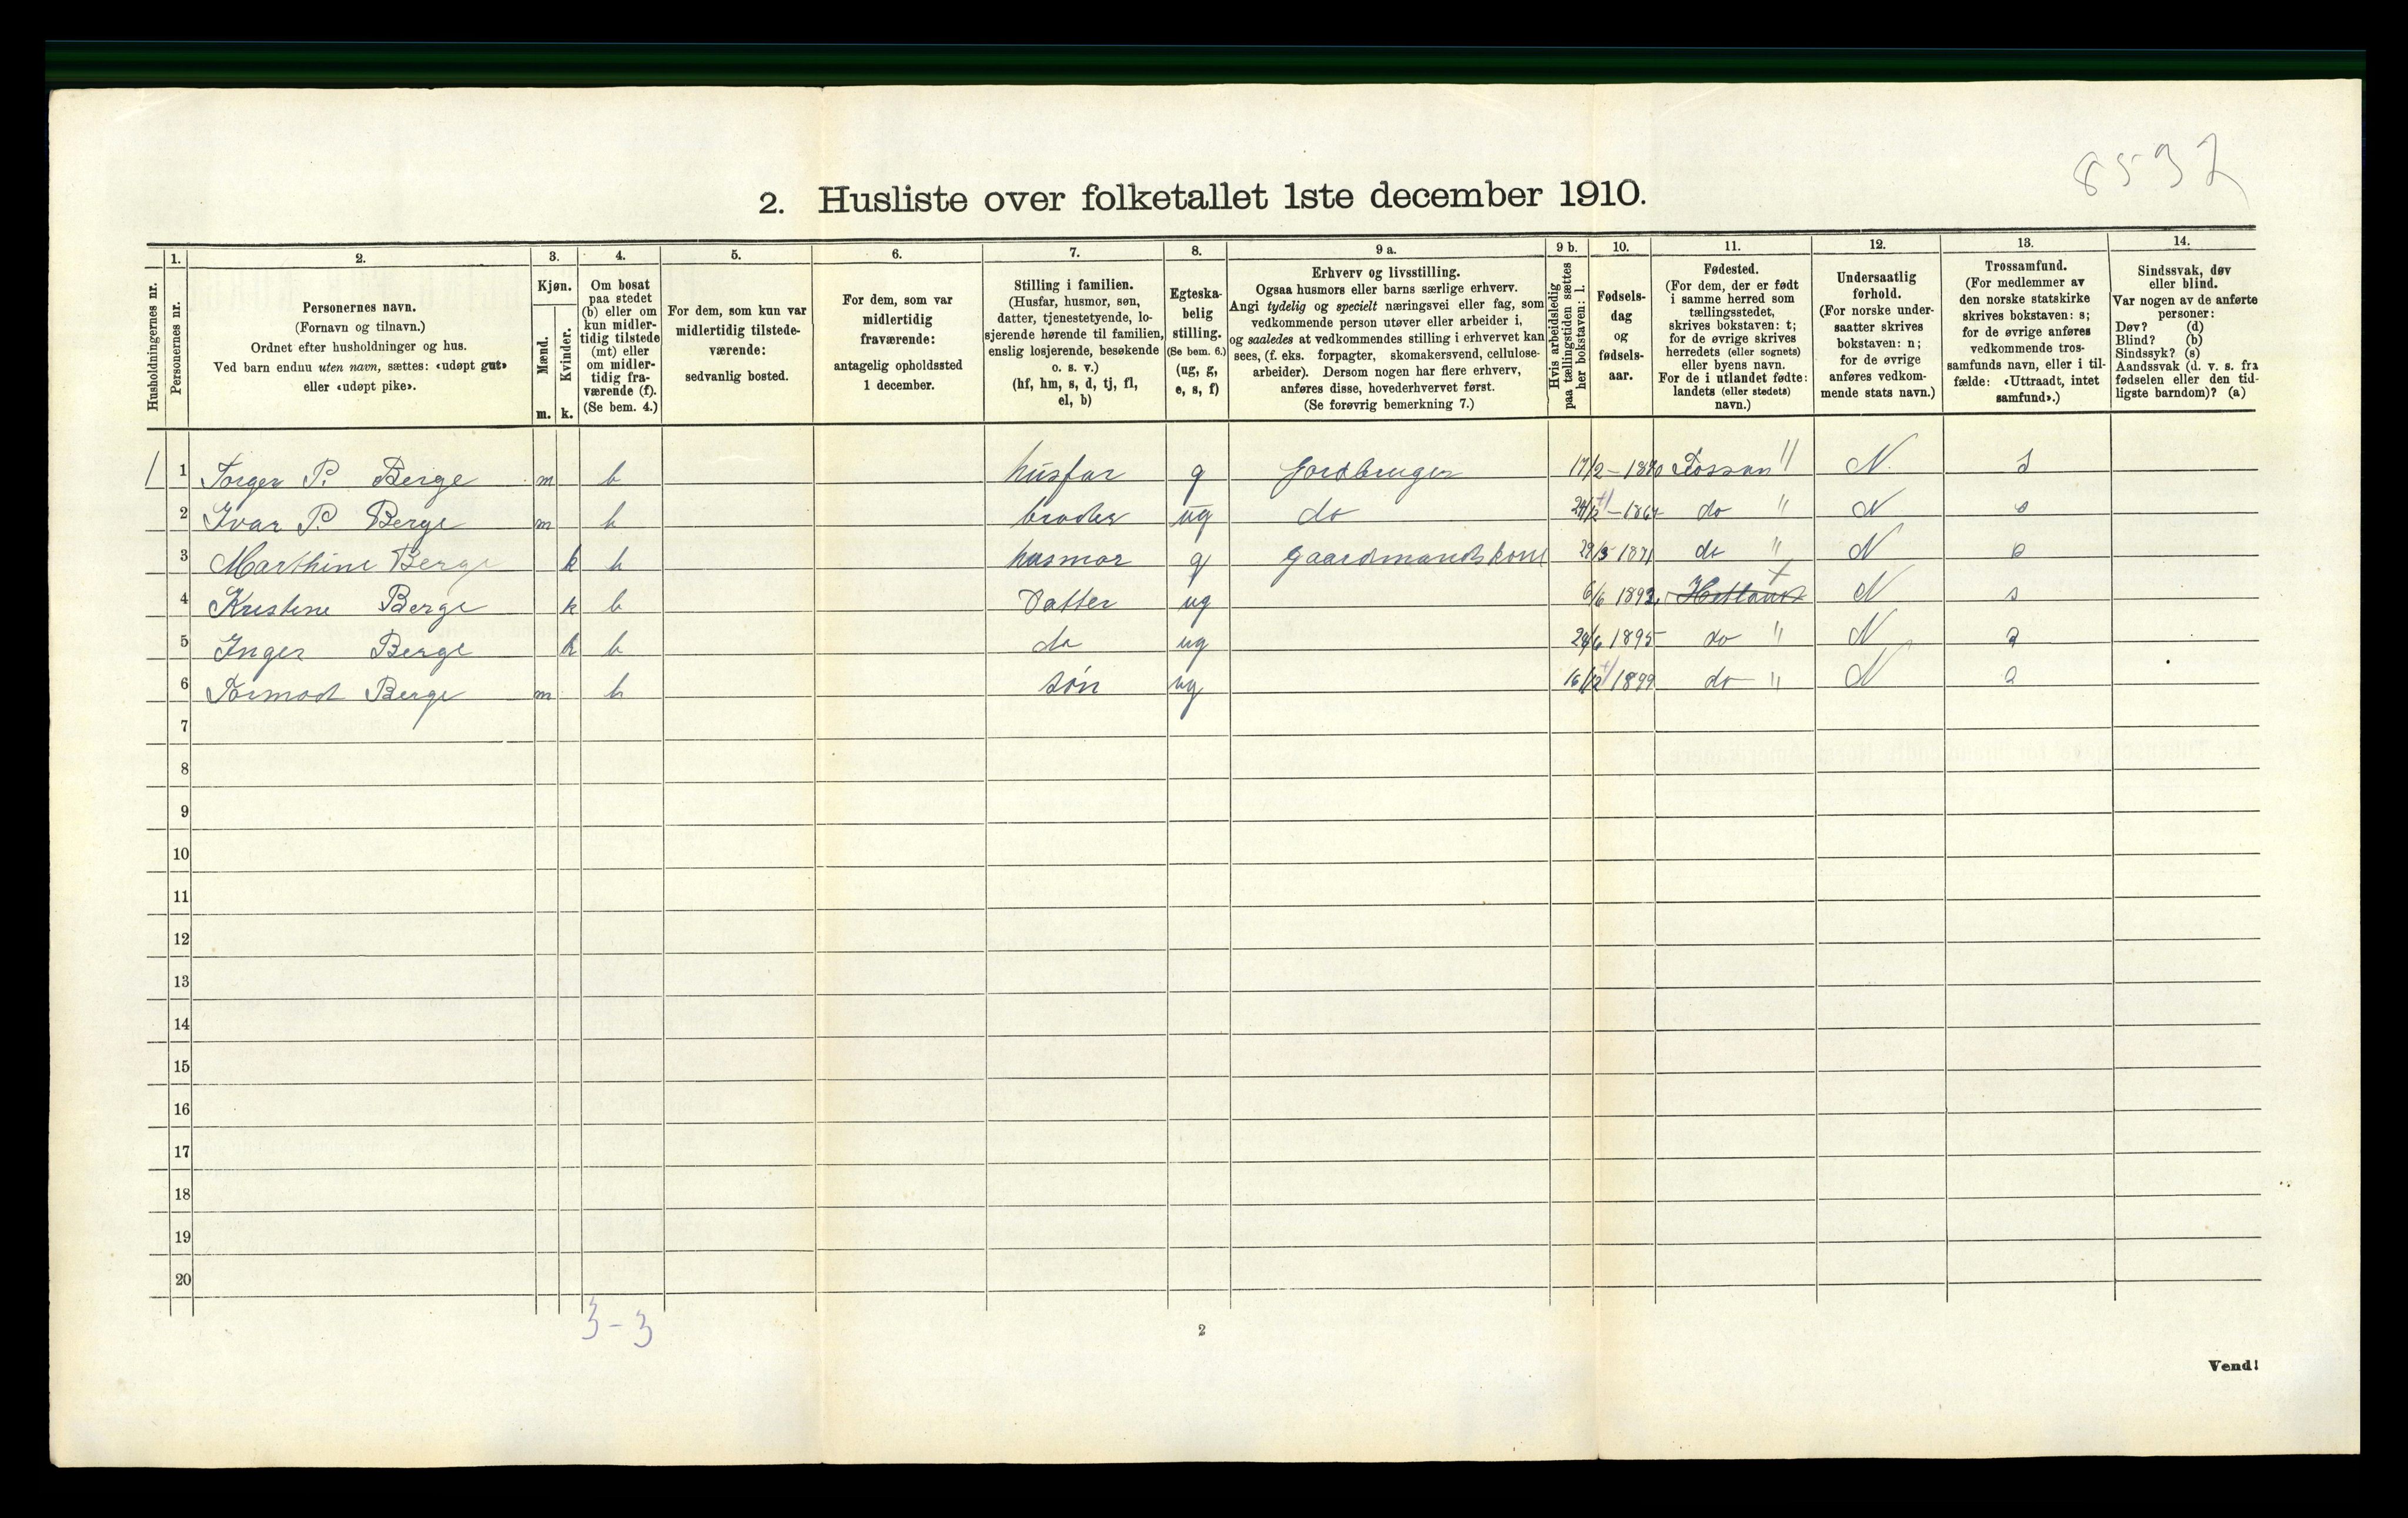 8532
2. Husliste over folketallet 1ste december 1910.
Husholdningernes nr.
1.
Personernes nr.
2.
Personernes navn.
(Fornavn og tilnavn.)
Ordnet efter husholdninger og hus.
Ved barn endnu uten navn, sættes: «udøpt gut»
eller «udøpt pike».
3.
Kjøn.
Mænd.
m.
Kvinder.
k.
4.
Om bosat
paa stedet
(b) eller om
kun midler-
tidig tilstede
(mt) eller
om midler-
tidig fra-
værende (f).
(Se bem. 4.)
5.
For dem, som kun var
midlertidig tilstede-
værende:
sedvanlig bosted.
6.
For dem, som var
midlertidig
fraværende:
antagelig opholdssted
1 december.
7.
Stilling i familien.
(Husfar, husmor, søn,
datter, tjenestetyende, lo-
sjerende hørende til familien,
enslig losjerende, besøkende
o. s. v.)
(hf, hm, s, d, tj, fl,
el, b)
8.
Egteska-
belig
stilling.
(Se bem. 6.)
(ug, g,
e, s, f)
9 a.
Erhverv og livsstilling.
Ogsaa husmors eller barns særlige erhverv.
Angi tydelig og specielt næringsvei eller fag, som
vedkommende person utøver eller arbeider i,
og saaledes at vedkommendes stilling i erhvervet kan
sees, (f. eks. forpagter, skomakersvend, cellulose-
arbeider). Dersom nogen har flere erhverv,
anføres disse, hovederhvervet først.
(Se forøvrig bemerkning 7.)
9 b.
Hvis arbeidsledig
paa tællingstiden sættes
her bokstaven: l.
10.
Fødsels-
dag
og
fødsels-
aar.
11.
Fødested.
(For dem, der er født
i samme herred som
tællingsstedet,
skrives bokstaven: t;
for de øvrige skrives
herredets (eller sognets)
eller byens navn.
For de i utlandet fødte:
landets (eller stedets)
navn.)
12.
Undersaatlig
forhold.
(For norske under-
saatter skrives
bokstaven: n;
for de øvrige
anføres vedkom-
mende stats navn.)
13.
Trossamfund.
(For medlemmer av
den norske statskirke
skrives bokstaven: s;
for de øvrige anføres
vedkommende tros-
samfunds navn, eller i til-
fælde: «Uttraadt, intet
samfund».)
14.
Sindssvak, døv
eller blind.
Var nogen av de anførte
personer:
Døv? (d)
Blind? (b)
Sindssyk? (s)
Aandssvak (d. v. s. fra
fødselen eller den tid-
ligste barndom)? (a)
1 1 Torger P. Berge m b husfar g Jordbruger 17/2 - Fossan " N. s
2 Ivar P. Berge m b broder ug do do " N s
3 Marthine Berge k b husmor g gaardmandskone 29/5 1871 do " N s
4 Kristine Berge k b Datter ug 6/6 Hetland N s
5 Inger Berge k b do ug 1895 do " N s
6 Tormod Berge m b søn ug 16/12 1899 do " N s
7
8
9
10
11
12
13
14
15
16
17
18
19
20
3-3
2
Vend!